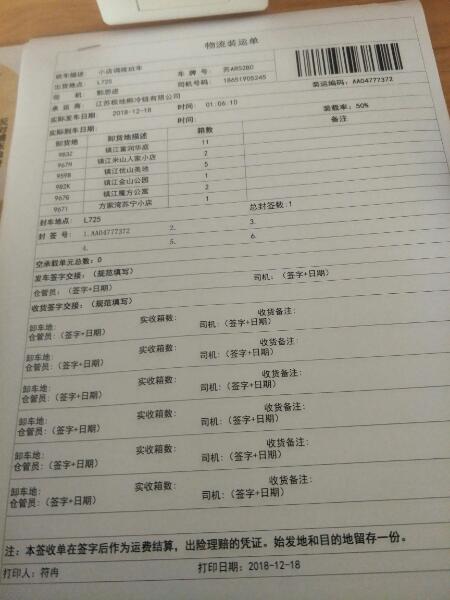 物流装运单
班车描述 小店调拨班车 车牌号: 苏AR52B0
出货地点 L725 司机号码 18651905245
装运编码: AA04777372
司机 郭思进
承运商 江苏极地熊冷链有限公司
实际发车日期 2018-12-18 时间: 01:06:10
装载率: 50%
实际到车日期 时间:
卸货地 卸货地描述 箱数 备注
9832 镇江富润华庭 11
967H 镇江米山人家小店 2
959B 镇江优山美地 5
982K 镇江金山公园 1
967G 镇江魔方公寓 2
9671 方家湾苏宁小店 1
封车地点: L725 总封签数:1
封签号: 1.AA04777372 2. 3.
4. 5. 6.
空承载单元总数: 0
发车签字交接: (规范填写)
仓管员: (签字+日期) 司机: (签字+日期)
收货签字交接: (规范填写)
卸车地: 实收箱数: 收货备注:
仓管员: (签字+日期) 司机: (签字+日期)
卸车地: 实收箱数: 收货备注:
仓管员: (签字+日期) 司机: (签字+日期)
卸车地: 实收箱数: 收货备注:
仓管员: (签字+日期) 司机: (签字+日期)
卸车地: 实收箱数: 收货备注:
仓管员: (签字+日期) 司机: (签字+日期)
卸车地: 实收箱数: 收货备注:
仓管员: (签字+日期) 司机: (签字+日期)
卸车地: 实收箱数: 收货备注:
仓管员: (签字+日期) 司机: (签字+日期)
注: 本签收单在签字后作为运费结算，出险理赔的凭证。始发地和目的地留存一份。
打印人: 符冉 打印日期: 2018-12-18